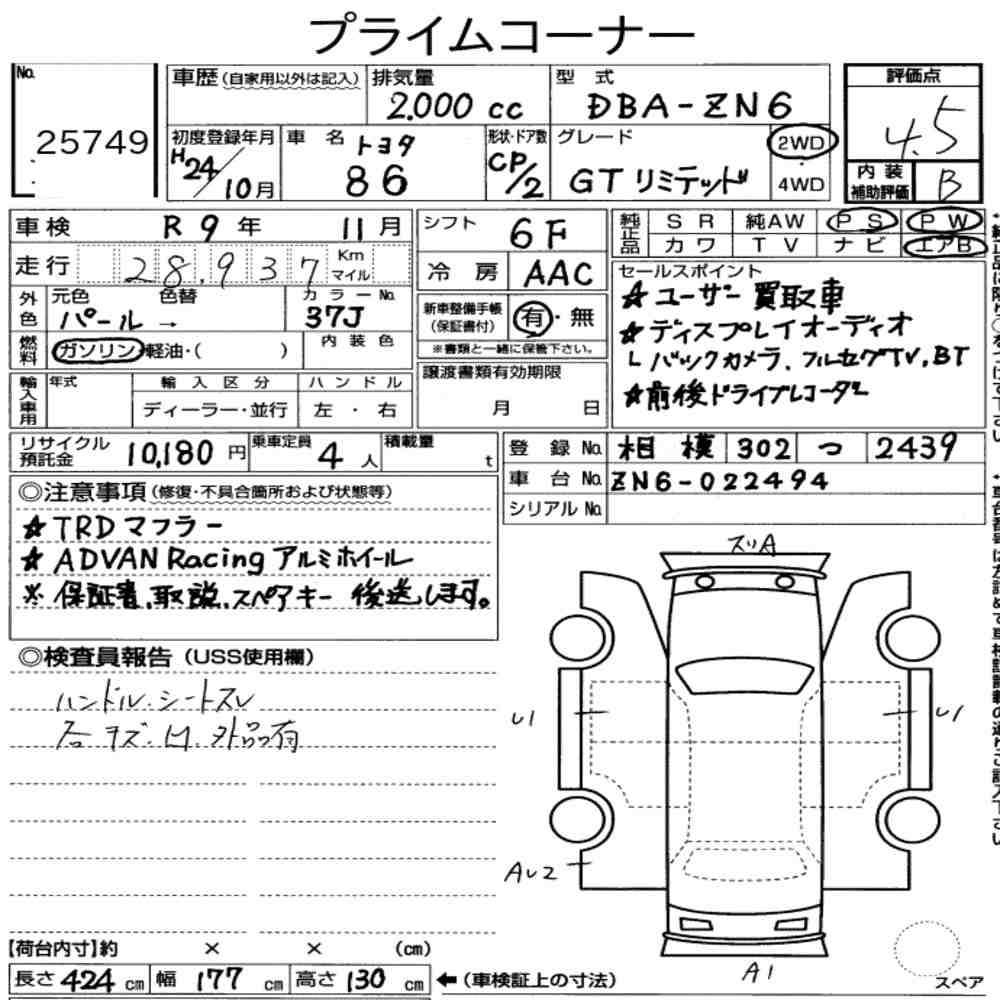 プライムコーナー
No. 25749
車歴 (自家用以外は記入)
排気量 2.000 cc
型式 DBA-ZN6
評価点 4.5
初度登録年月 H24/10月
車名 トヨタ 86
形状・ドア数 CP/2
グレード GTリミテッド
2WD・4WD
内装補助評価 B
車検 R9年 11月
シフト 6F
純正品 SR 純AW PS PW
カワ TV ナビ エアB
走行 28,937 Km マイル
冷房 AAC
セールスポイント
☆ユーザー買取車
☆ディスプレイオーディオ
└バックカメラ、フルセグTV、BT
☆前後ドライブレコーダー
外色 元色 パール → 色替
カラーNo. 37J
新車整備手帳(保証書付) 有・無
※書類と一緒に保管下さい。
燃料 ガソリン・軽油・( )
内装色
譲渡書類有効期限
月 日
輸入車用 年式 輸入区分 ハンドル
ディーラー・並行 左・右
リサイクル預託金 10,180円
乗車定員 4人
積載量 t
登録No. 相模 302 つ 2439
車台No. ZN6-022494
シリアルNo.
◎注意事項(修復・不具合箇所および状態等)
☆TRDマフラー
☆ADVAN Racing アルミホイール
※保証書、取説、スペアキー 後送します。
◎検査員報告(USS使用欄)
ハンドル・シートスレ
各キズ・凹、外品有
スリA
U1
U1
AU2
A1
スペア
【荷台内寸】約 × × (cm)
長さ 424 cm 幅 177 cm 高さ 130 cm ←(車検証上の寸法)